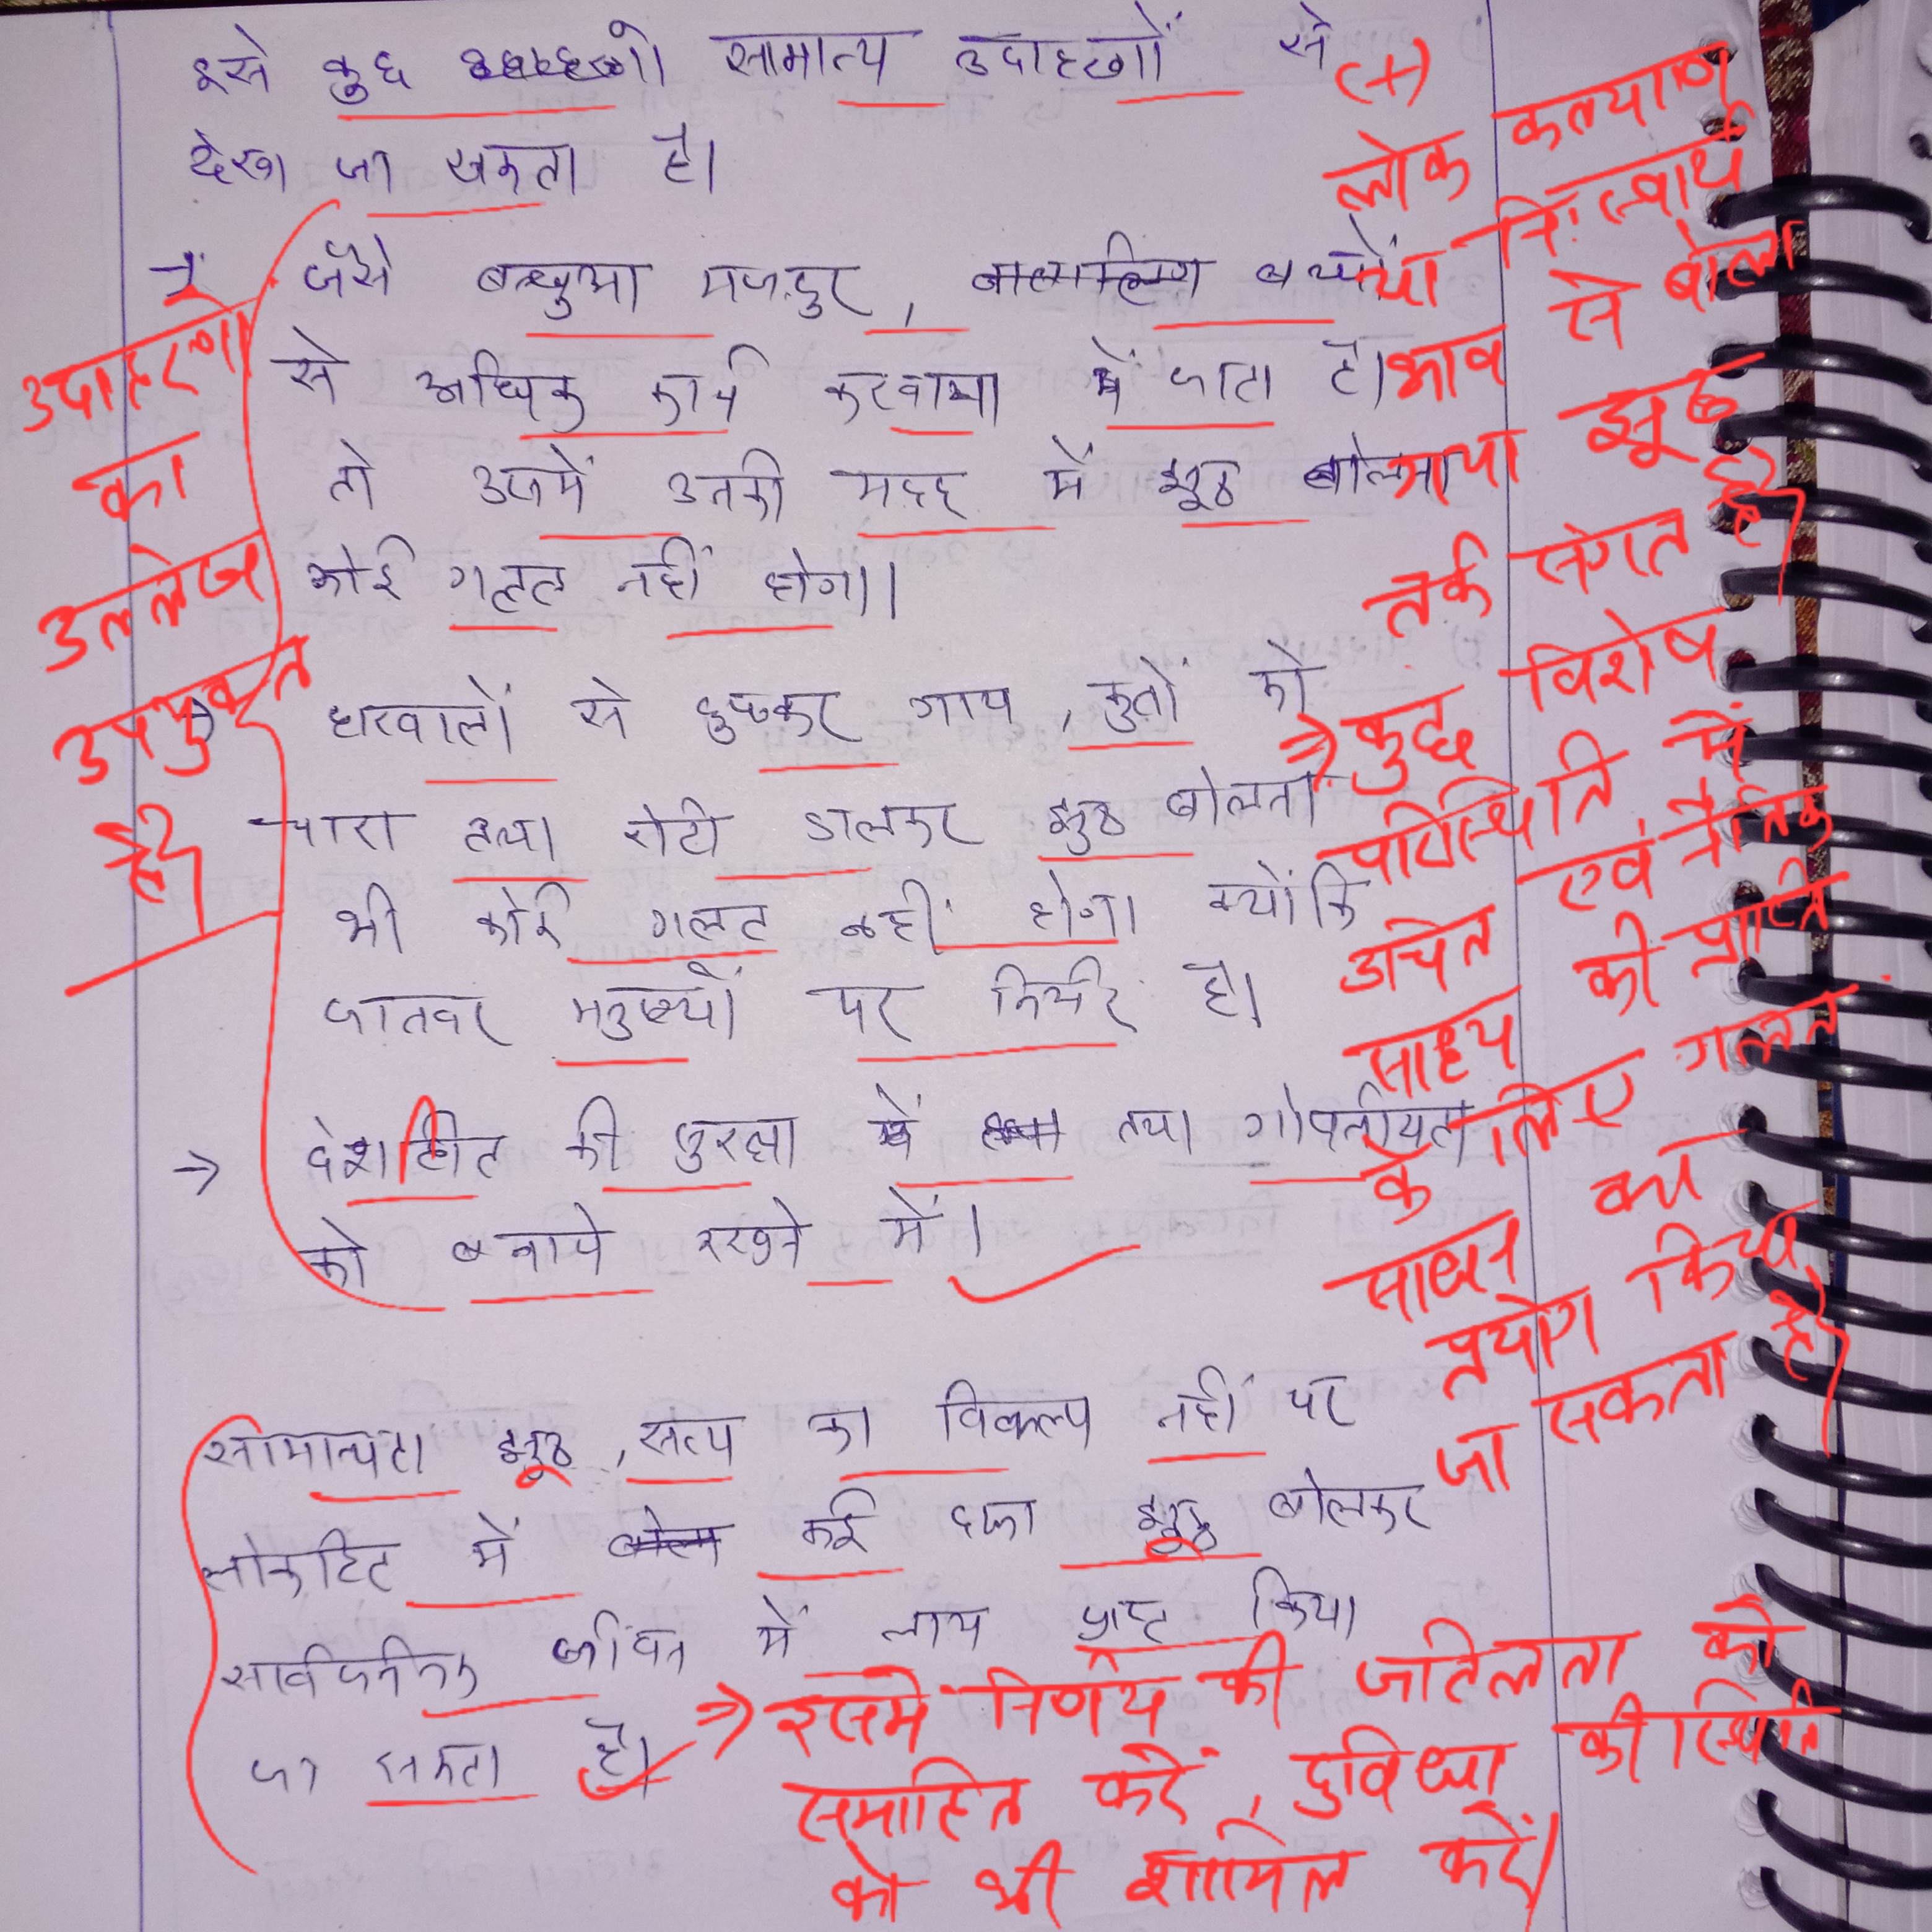 इसे कुछ सामान्य उदाहरणों से
देखा जा सकता है।
→ जैसे बन्धुआ मजदुर, बच्चों
से अधिक कार्य करवाया जाता है।
तो उनमें उनकी मदद में झुठ बोलना
कोई गलत नहीं होगा।
→ घरवालों से छुपकर गाय, कुतों को
चारा तथा रोटी डालकर झुठ बोलना
भी कोई गलत नहीं होगा क्योंकि
जानवर मनुष्यों पर निर्भर है।
→ देशहित की सुरक्षा तथा गोपनीयता
को बनाये रखने में।
सामान्यता झूठ, सत्य का विकल्प नहीं पर
लोकहित में कई दफा झूठ बोलकर
सार्वजनिक जीवन में लाभ प्राप्त किया
जा सकता है।
उदाहरणों
का
उल्लेख
उपयुक्त
है
(+)
लोक कल्याण
या नि:स्वार्थ
भाव से बोला
गया झूठ
तर्क संगत है
⇒ कुछ विशेष
परिस्थिति में
उचित एवं नैतिक
साध्य की प्राप्ति
के लिए गलत
साधन का
प्रयोग किया
जा सकता है
⇒ इसमे निर्णय की जटिलता को
समाहित करें, दुविधा की स्थिति
को भी शामिल करें।